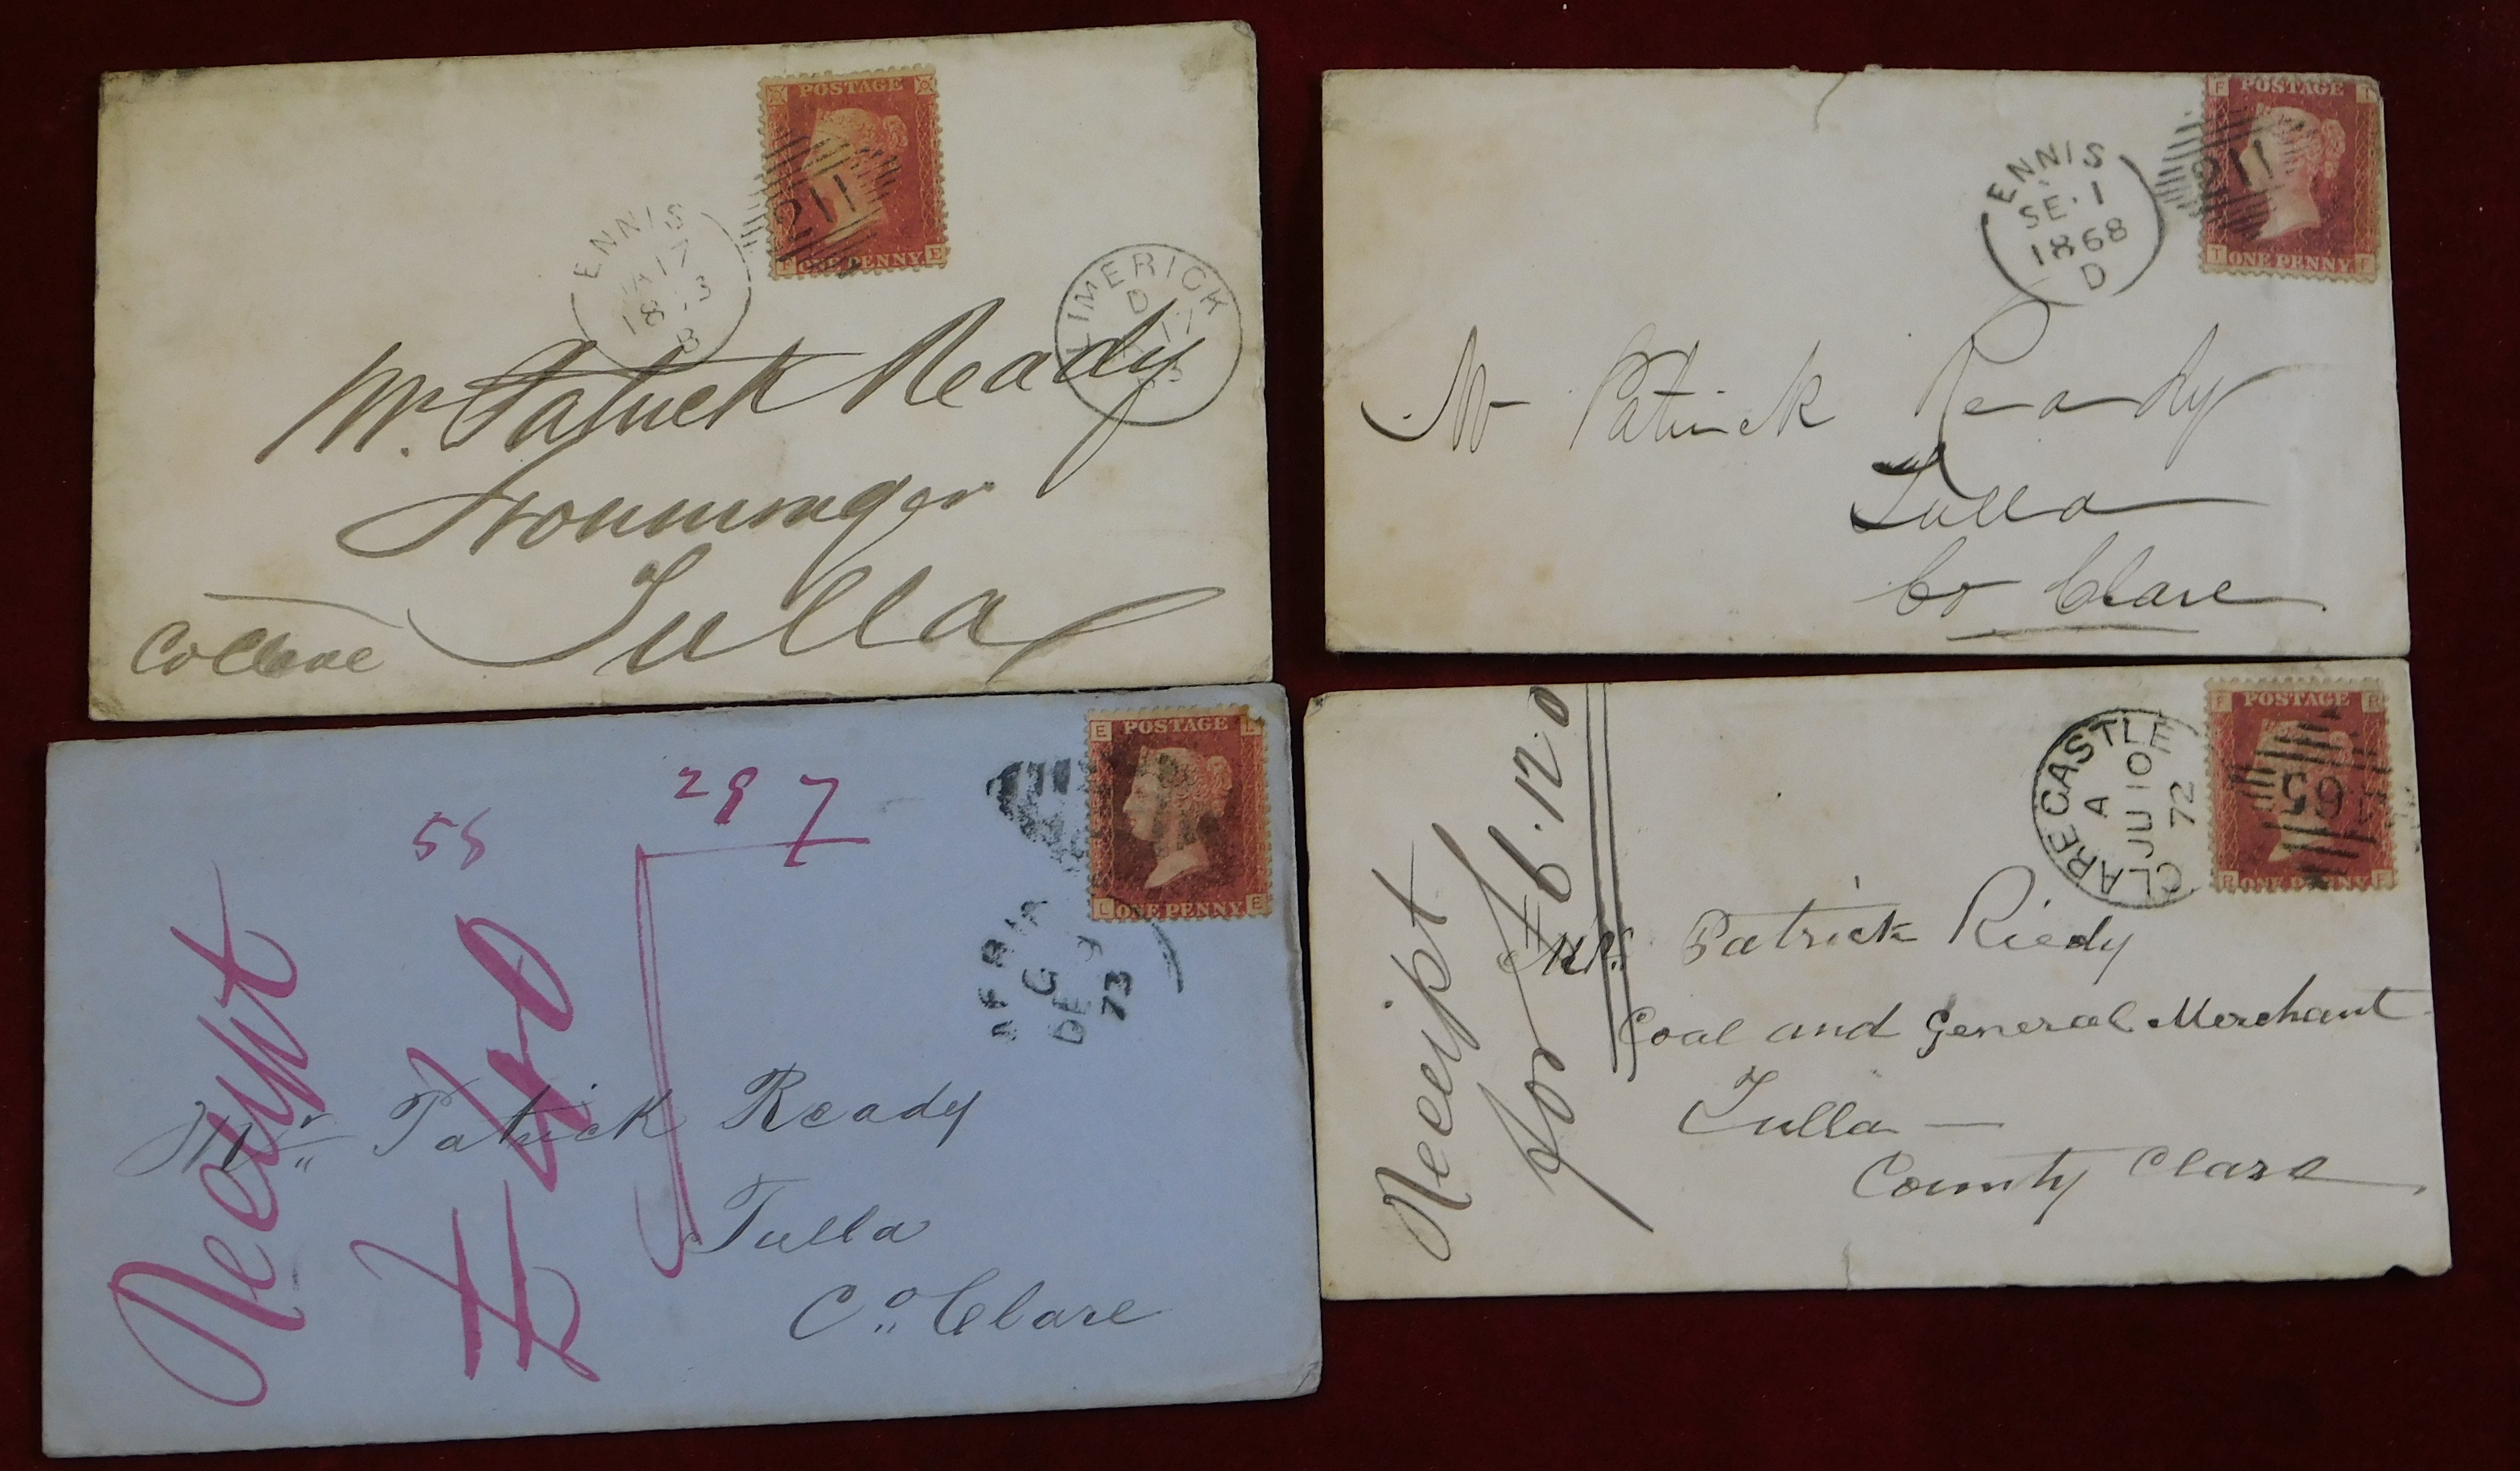 POSTAGE
211
F ONE PENNY E
ENNIS
JA 17
B
LIMERICK
D
17
Mr. Patrick Ready
Ironmonger
Tulla
F POSTAGE T
211
T ONE PENNY F
ENNIS
SE·1
1868
D
Mr Patrick Ready
Tulla
Co Clare
E POSTAGE L
L ONE PENNY E
G
DE
73
55
29 7
Receipt
£40
Mr Patrick Ready
Tulla
Co. Clare
F POSTAGE R
65
R ONE PENNY F
CLARECASTLE
A
JU 10
72
Receipt
for £6.12.0
Mr. Patrick Riedy
Coal and General Merchant
Tulla —
County Clare